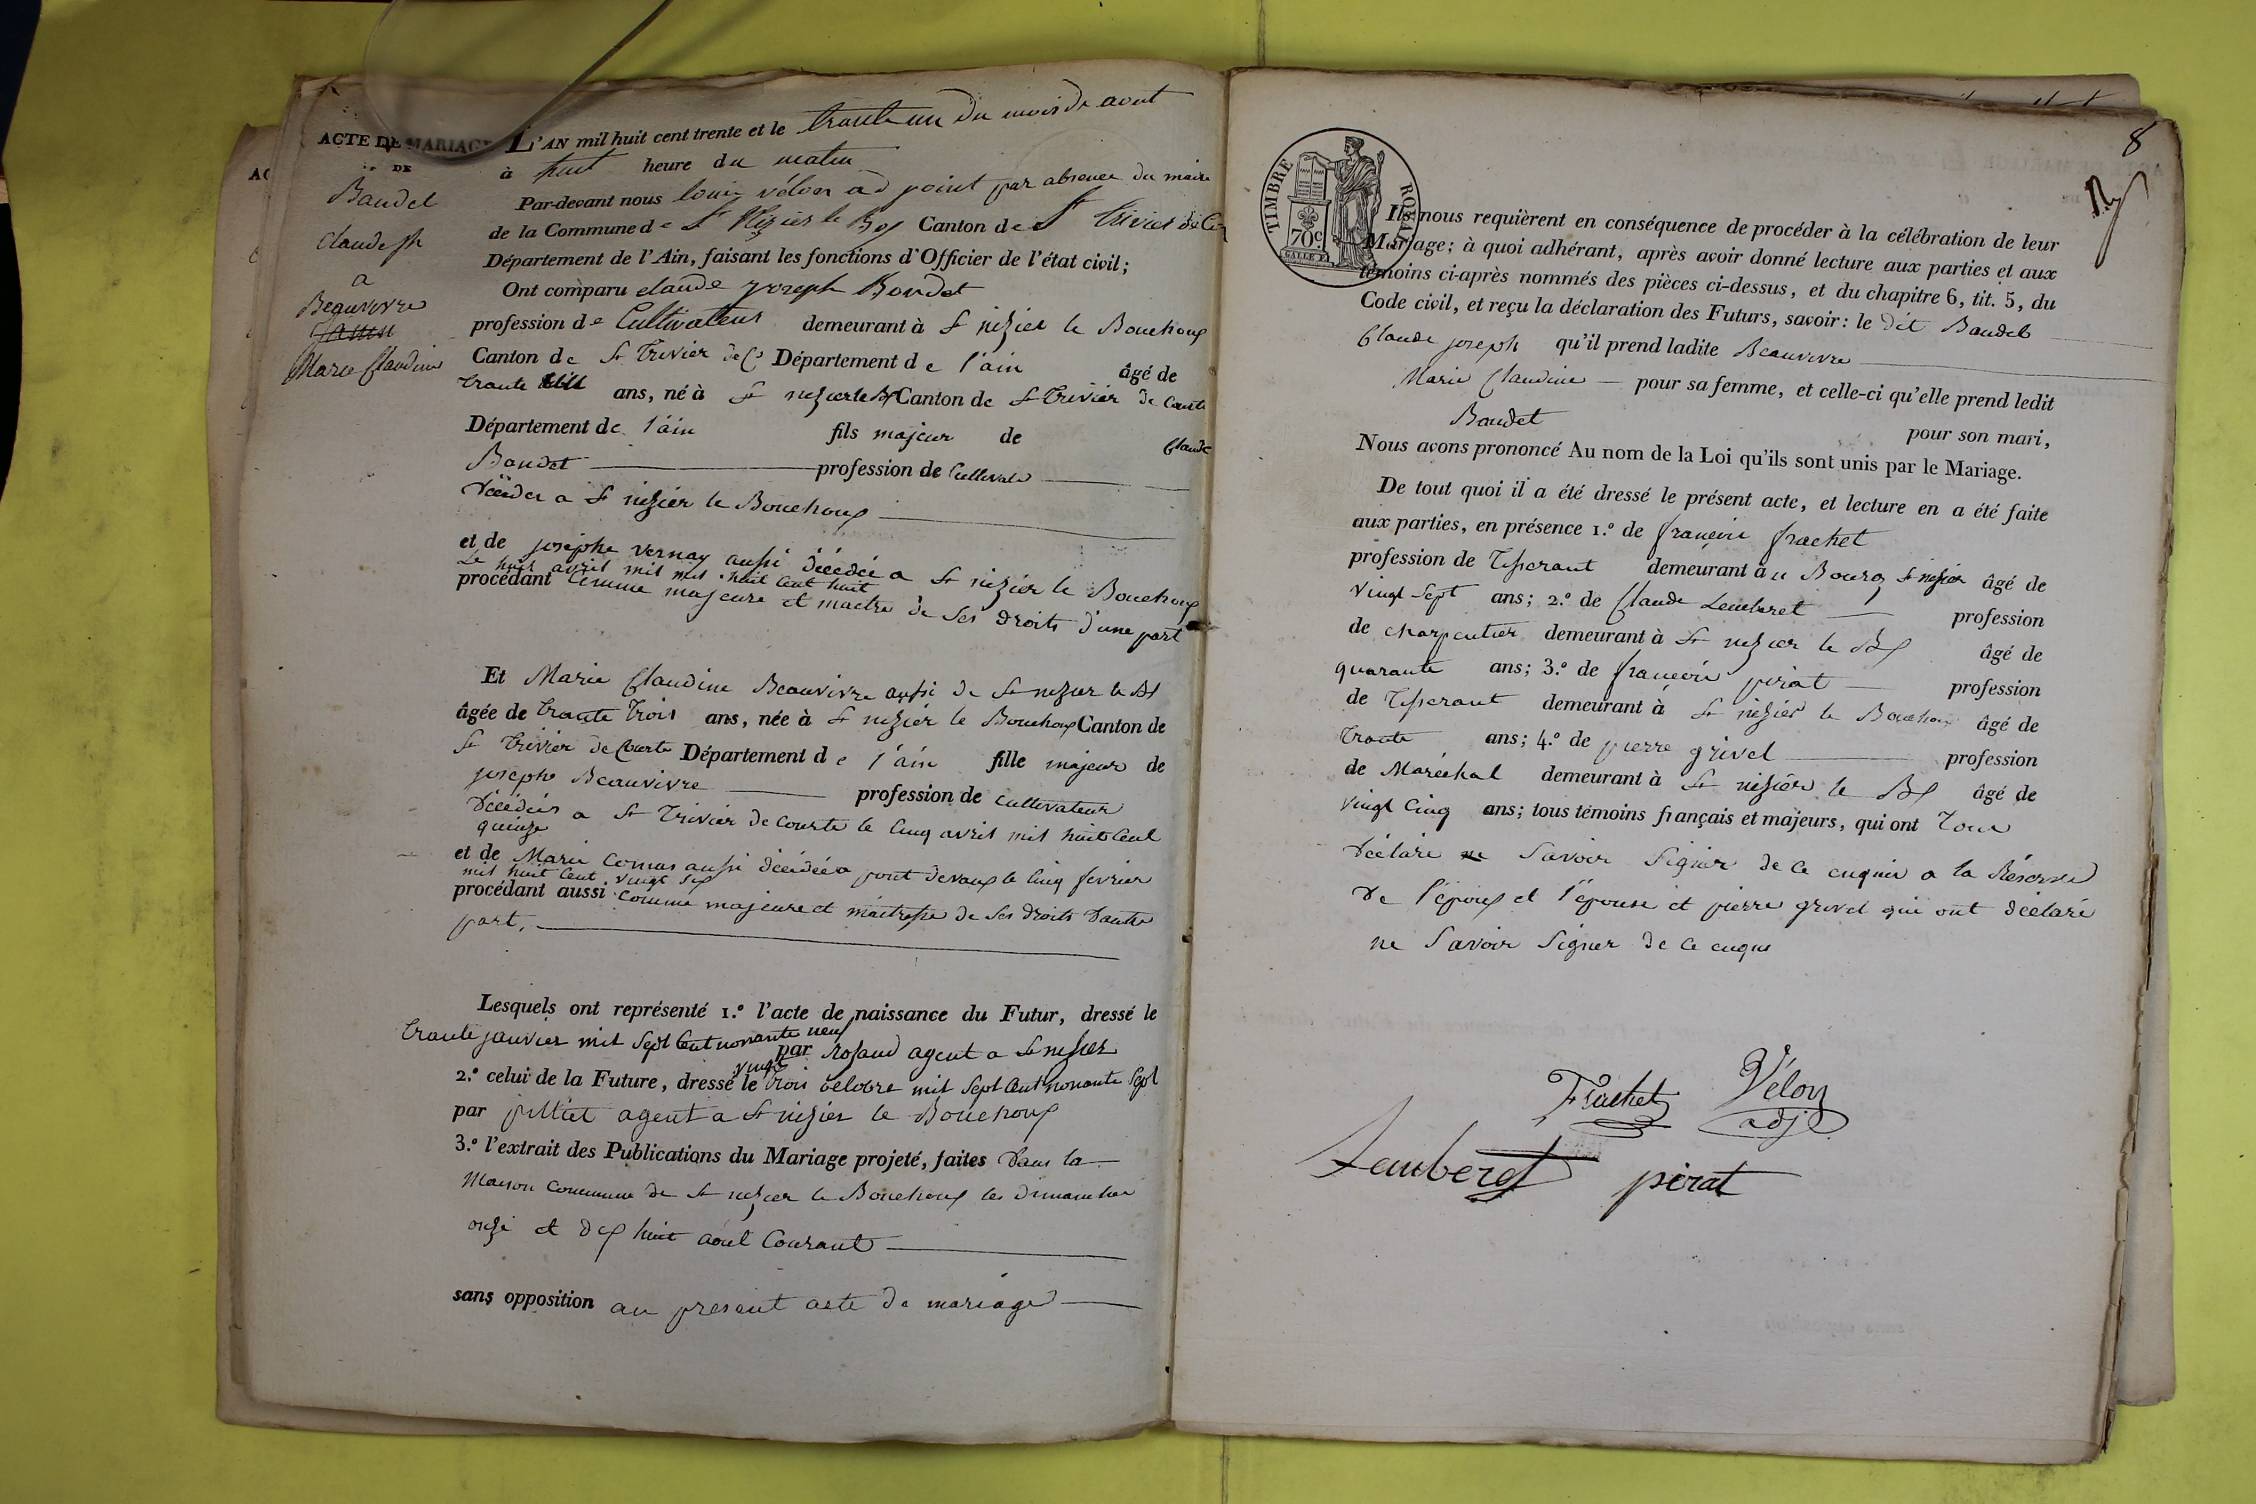 ACTE DE MARIAGE
DE
Baudet
Claude jh
a
Beauvivre
Marie Claudine
L'AN mil huit cent trente et le trante un du mois de aout
à huit heure du matin
Par-devant nous louis vélon ad joint par absence du maire
de la Commune de St Nizier le Bx Canton de St trivier de Cou
Département de l'Ain, faisant les fonctions d'Officier de l'état civil;
Ont comparu claude joseph Boudet
profession de Cultivateur demeurant à St nizier le Bouchoux
Canton de St Trivier de Cs Département de l'ain âgé de
trante ans, né à St nizier le Bx Canton de St Trivier de Courte
Département de l'ain fils majeur de Claude
Boudet profession de Cultivate
Décéder a St nizier le Bouchoux
et de josephe vernay aussi décédée a St nizier le Bouchoux
Le huit avril mil mil huit cent huit
procédant comme majeure et maitre de ses droits d'une part
Et Marie Claudine Beauvivre aussi de St nizier le Bx
âgée de trante trois ans, née à St nizier le Bouchoux Canton de
St Trivier de Courte Département de l'ain fille majeur de
josephe Beauvivre profession de cultivateur
Décédés a St Trivier de Courte le Cinq avril mil huit Cent
quinze
et de Marie Comas aussi décédée a pont devaux le Cinq fevrier
mil huit Cent vingt six
procédant aussi comme majeure et maitresse de ses droits dautre
part.
Lesquels ont représenté 1.º l'acte de naissance du Futur, dressé le
trante janvier mil sept Cent nonante neuf
par rosaud agent a St nizier
2.º celui de la Future, dressé le vingt trois octobre mil sept Cent nonante sept
par agent a St nizier le Bouchoux
3.º l'extrait des Publications du Mariage projeté, faites dans la
Maison commune de St nizier le Bouchoux les dimanches
onze et dix huit août Courant
sans opposition au present acte de mariage
8
TIMBRE ROYAL
70c.
Ils nous requièrent en conséquence de procéder à la célébration de leur
Mariage; à quoi adhérant, après avoir donné lecture aux parties et aux
témoins ci-après nommés des pièces ci-dessus, et du chapitre 6, tit. 5, du
Code civil, et reçu la déclaration des Futurs, savoir: le dit Baudet
Claude joseph qu'il prend ladite Beauvivre
Marie Claudine pour sa femme, et celle-ci qu'elle prend ledit
Baudet pour son mari,
Nous avons prononcé Au nom de la Loi qu'ils sont unis par le Mariage.
De tout quoi il a été dressé le présent acte, et lecture en a été faite
aux parties, en présence 1.º de françois frachet
profession de Tisserant demeurant à u Bourg St nizier âgé de
vingt sept ans; 2.º de Claude Lemberet profession
de charpentier demeurant à St nizier le Bx âgé de
quarante ans; 3.º de françois pirat profession
de Tisserant demeurant à St nizier le Bouchoux âgé de
trante ans; 4.º de pierre grivel profession
de Maréchal demeurant à St nizier le Bx âgé de
vingt Cinq ans; tous témoins français et majeurs, qui ont Tous
Déclaré ne savoir signer de ce enquis a la Réserve
de l'époux et l'épouse et pierre grivel qui ont déclaré
ne savoir signer de ce enquis
Frachet Vélon
adj
Lemberet pirat